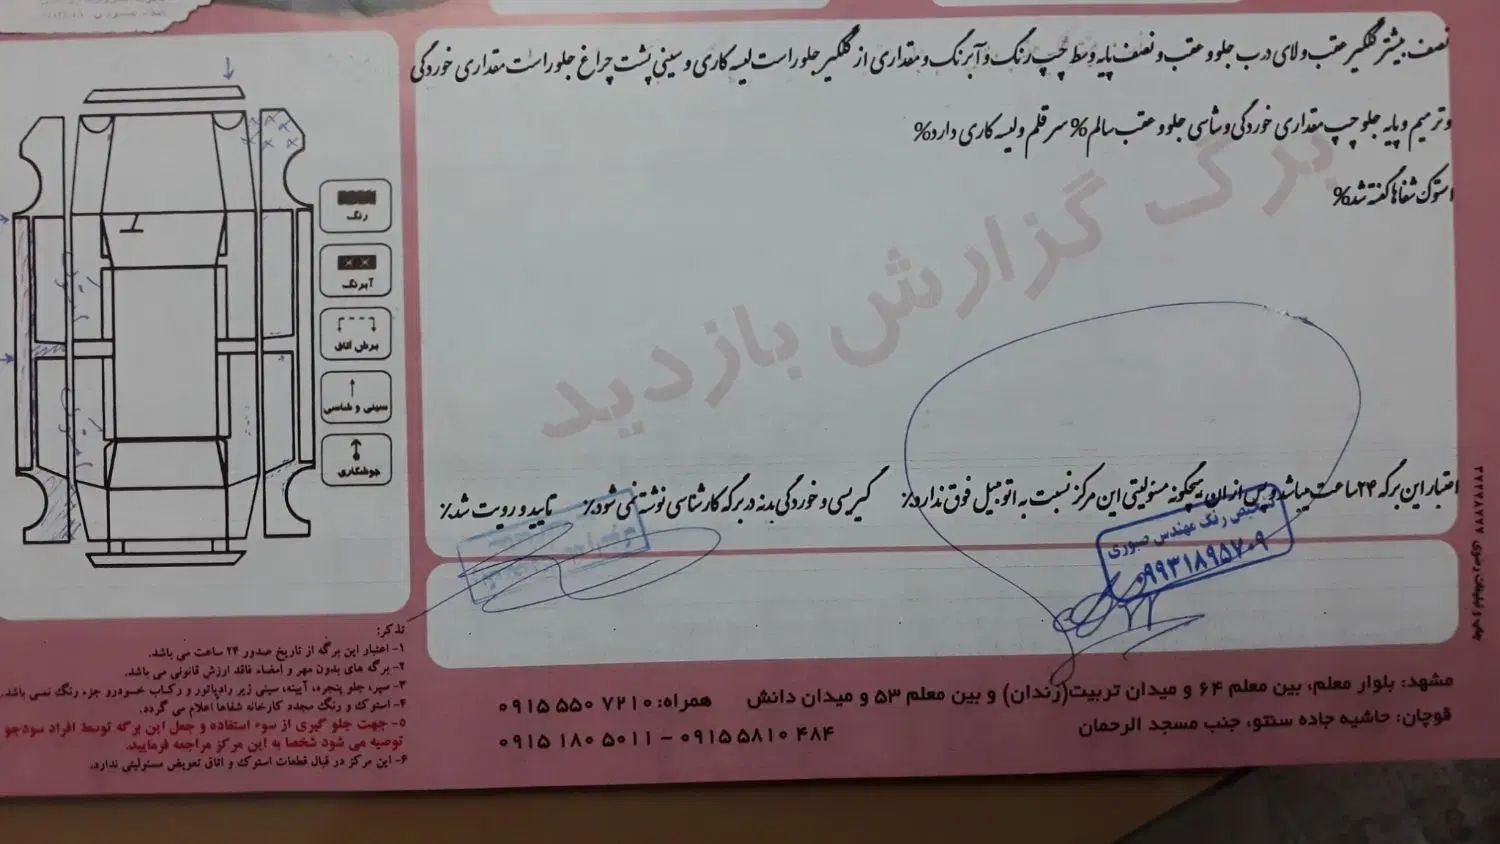 نصف بیشتر گلگیر عقب و لای درب جلو و عقب و نصف پایه وسط چپ رنگ و آبرنگ و مقداری از گلگیر جلو راست لیسه کاری و سینی پشت چراغ جلو راست مقداری خوردگی
و ترمیم و پایه جلو چپ مقداری خوردگی و شاسی جلو و عقب سالم% سر قلم و لیسه کاری دارد%
استوک شفاها گفته شد%
برگ گزارش بازدید
رنگ
آبرنگ
برش اتاق
سینی و شاسی
جوشکاری
اعتبار این برگه ۲۴ساعت میباشد و پس از ان هیچگونه مسئولیتی این مرکز نسبت به اتومبیل فوق ندارد٪ گیریسی و خوردگی بدنه در برگه کارشناسی نوشته نمی شود٪ تایید و رویت شد٪
تشخیص رنگ مهندس صبوری
۰۹۹۳۱۸۹۵۷۰۹
تذکر:
۱- اعتبار این برگه از تاریخ صدور ۲۴ ساعت می باشد.
۲- برگه های بدون مهر و امضاء فاقد ارزش قانونی می باشد.
۳- سپر، جلو پنجره، آیینه، سینی زیر رادیاتور و رکاب خودرو جزء رنگ نمی باشد.
۴- استوک و رنگ مجدد کارخانه شفاها اعلام می گردد.
۵- جهت جلو گیری از سوء استفاده و جعل این برگه توسط افراد سودجو
توصیه می شود شخصا به این مرکز مراجعه فرمایید.
۶- این مرکز در قبال قطعات استوک و اتاق تعویض مسئولیتی ندارد.
مشهد: بلوار معلم، بین معلم ۶۴ و میدان تربیت(زندان) و بین معلم ۵۳ و میدان دانش همراه: ۰۹۱۵ ۵۵۰ ۷۲۱۰
قوچان: حاشیه جاده سنتو، جنب مسجد الرحمان ۰۹۱۵ ۵۸۱۰ ۴۸۴ – ۰۹۱۵ ۱۸۰ ۵۰۱۱